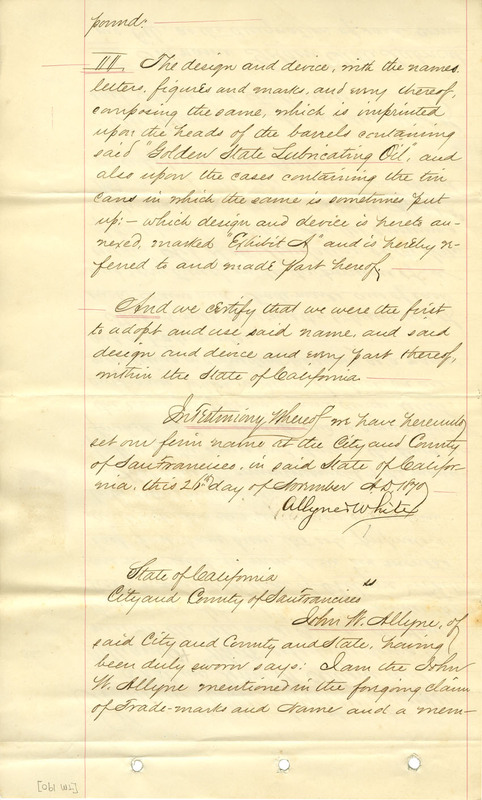 pound:
III. The design and device, with the names,
letters, figures and marks, and every thereof,
composing the same, which is imprinted
upon the heads of the barrels containing
said "Golden State Lubricating Oil", and
also upon the cases containing the tin
cans in which the same is sometimes put
up:— which design and device is hereto an-
nexed, marked "Exhibit A" and is hereby re-
ferred to and made part hereof.
And we certify that we were the first
to adopt and use said name, and said
design and device and every part thereof,
within the State of California.
In Testimony Whereof we have hereunto
set our firm name at the City and County
of San Francisco, in said State of Califor-
nia, this day of November A.D. 1890
Allyne & White
State of California
City and County of San Francisco ss
John W. Allyne, of
said City and County and State, having
been duly sworn says: I am the John
W. Allyne mentioned in the forgoing claim
of Trade-marks and Name and a mem-
[TM 190]